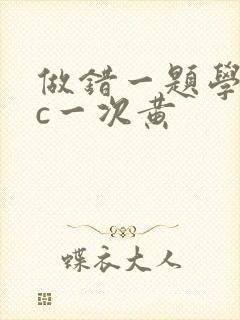 做錯一題學
c一次黃
蝶衣大人